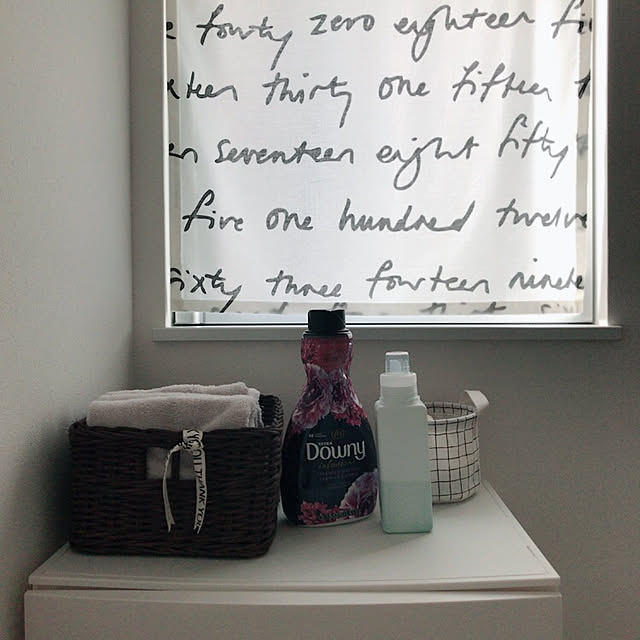 forty zero eighteen
thirty one fifteen
seventeen eight fifty
five one hundred twelve
sixty three fourteen ninete
ULTRA
Downy
infusions
YOU THANK YOU